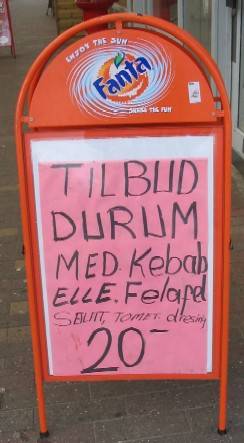 ENJOY THE SUN
Fanta
SHARE THE FUN
TILBUD
DURUM
MED. Kebab
ELLE. Felafel
SALIT, TOMET. dresing
20-